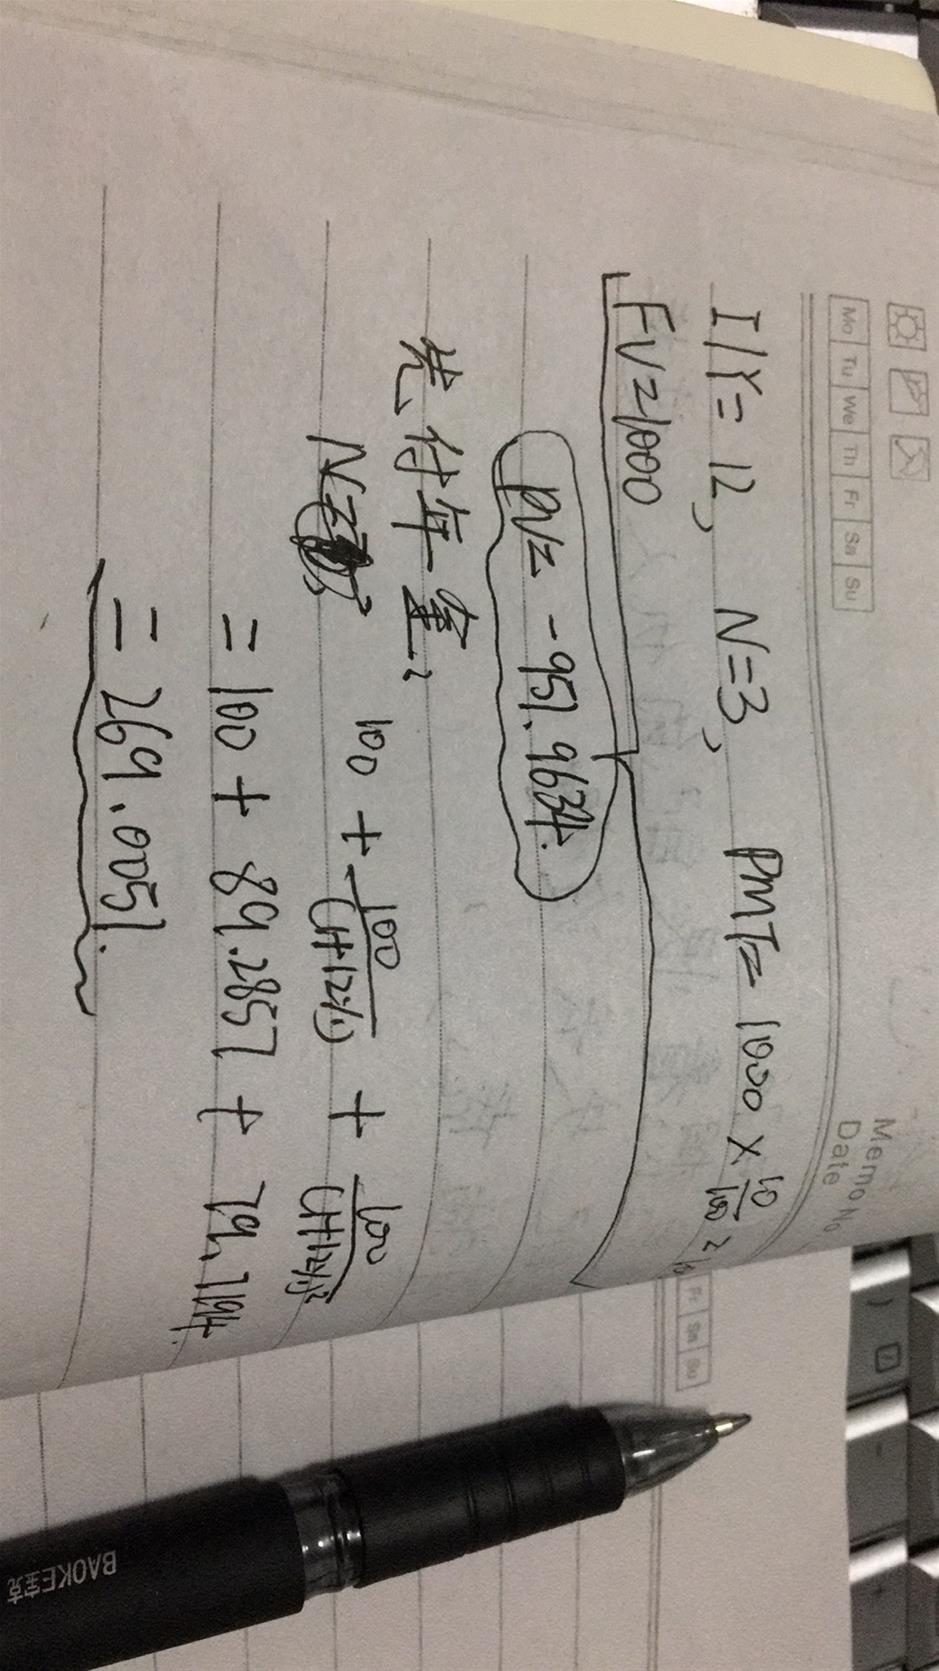 Memo No
Mo Tu We Th Fr Sa Su
Date
I/Y = 12, N=3, PMT= 1000 × 10/100 =
FV=1000
PV= -951.9634.
先付年金:
N=3
100 + 100/(1+12%) + 100/(1+12%)²
= 100 + 89.2857 + 79.7194
= 269.0051.
Fr Sa Su
BAOKE宝克